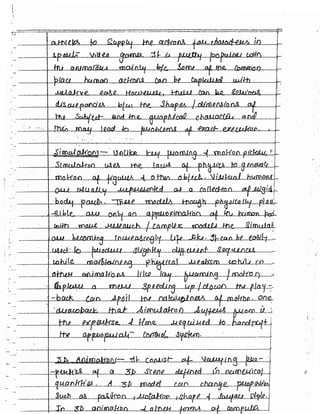 athletes to supply the actions for characters in
sports video games. It is pretty popular with
the animators mainly b/c some of the common
place human actions can be captured with
relative ease. However, there can be serious
discrepancies b/w the shapes / dimensions of
the subject and the graphical character and
this may lead to problems of exact execution.
Simulation:- Unlike key framing & motion picture,
Simulation uses the laws of physics to generate
motion of figures & other objects. Virtual humans
are usually represented as a collection of rigid
body parts. These models though physically plau
-sible are only an approximation of the human body
with more research / complex models the Simulat
are becoming increasingly life like. It can be easily
used to produce slightly different sequences
while maintaining physical realism while in
other animations like key framing / motion
Capture a mere speeding up / down the play-
-back can spoil the naturalness of motion. One
drawback that Simulation suffers from is
the expertise & time required to handcraft
the appropriate control system.
3D Animation:- It consist of Varying
of a 3D scene defined in numerical
quantities. A 3D model can change
Such as position, rotation, shape & surface style.
In 3D animation & other forms of computer